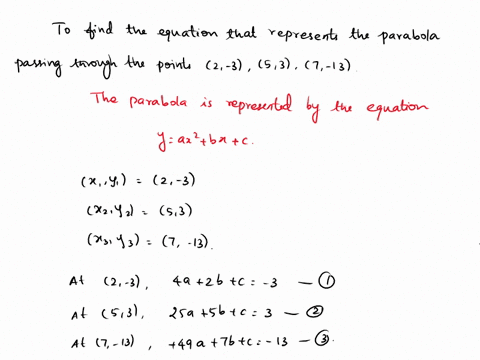 To find the equation that represents the parabola
passing through the points (2,-3), (5,3), (7,-13).
The parabola is represented by the equation
y=ax²+bx+c.
(x₁,y₁) = (2,-3)
(x₂,y₂) = (5,3)
(x₃,y₃) = (7,-13).
At (2,-3), 4a+2b+c = -3 — ①
At (5,3), 25a+5b+c = 3 — ②
At (7,-13), +49a+7b+c = -13 — ③